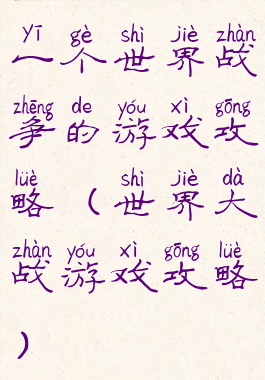 yī gè shì jiè zhàn
一个世界战
zhēng de yóu xì gōng
争的游戏攻
lüè shì jiè dà
略（世界大
zhàn yóu xì gōng lüè
战游戏攻略
）